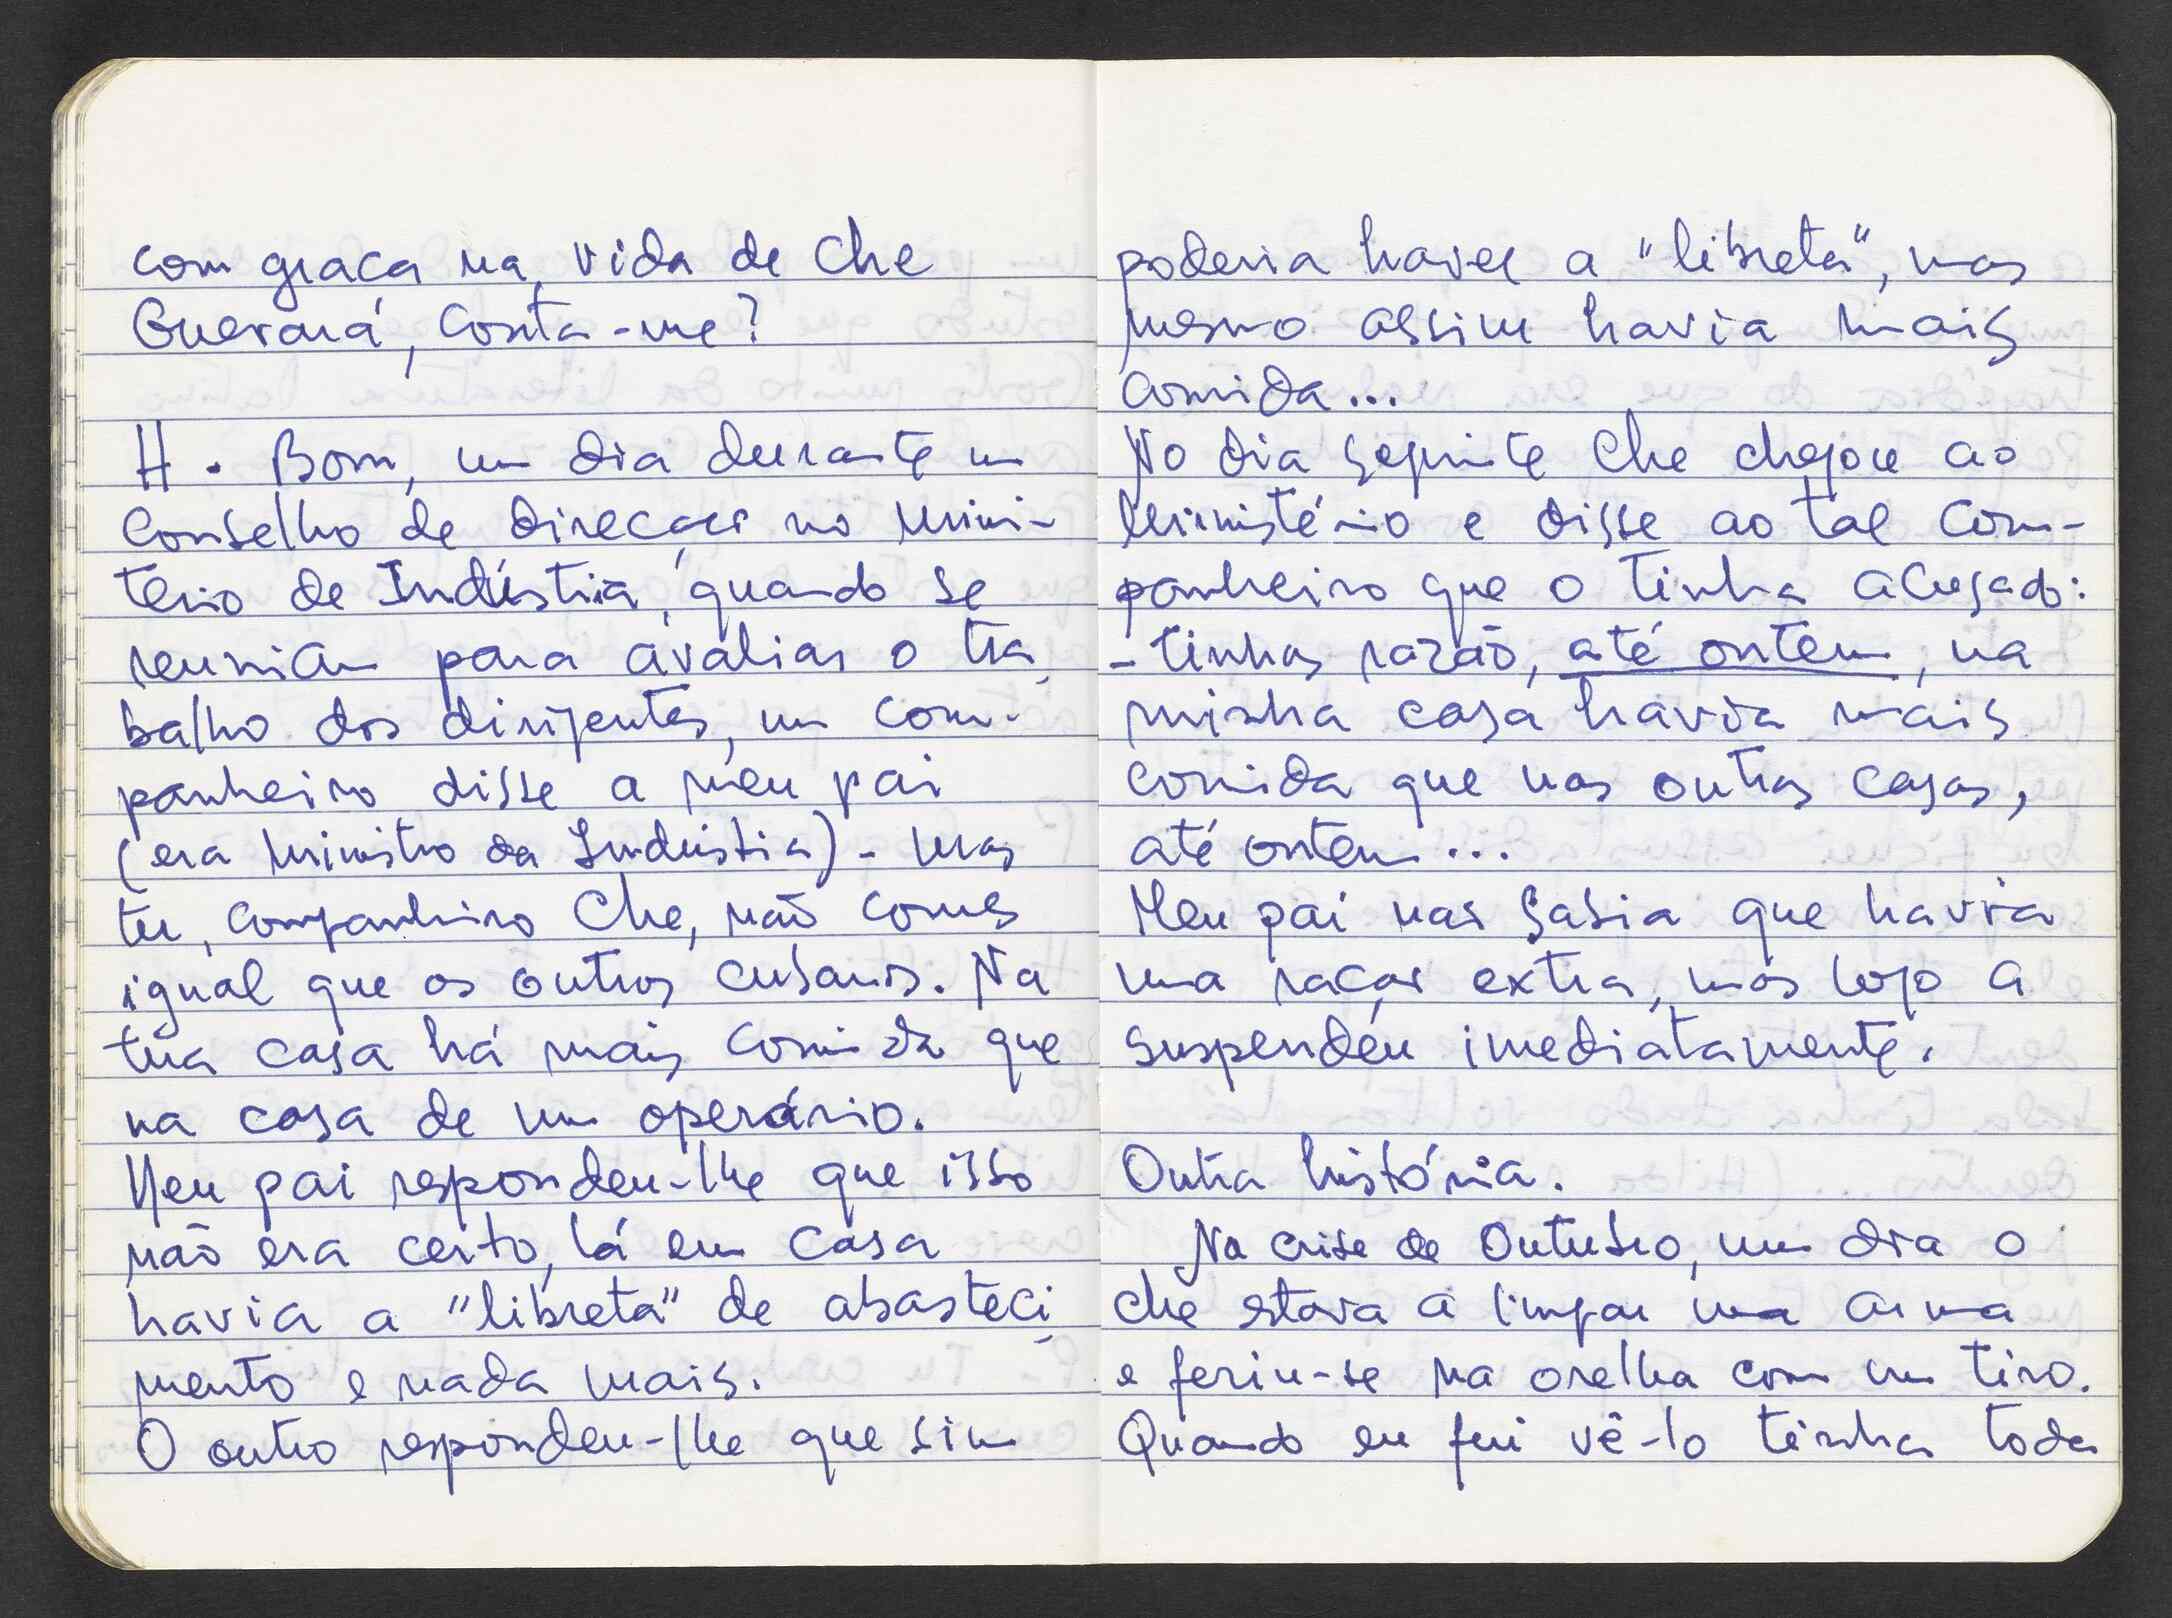 com graça na vida de Che
Guevará, conta-me?
H. Bom, um dia durante um
Conselho de direcção no Minis-
terio de Indústria, quando se
reuniam para avaliar o tra_
balho dos dirigentes, um com-
panheiro disse a meu pai
(era Ministro da Indústria) - Mas
tu, companheiro Che, não comes
igual que os outros cubanos. Na
tua casa há mais comida que
na casa de um operário.
Meu pai respondeu-lhe que isso
não era certo, lá em casa
havia a "libreta" de abasteci_
mento e nada mais.
O outro respondeu-lhe que sim
poderia haver a "libreta", mas
mesmo assim havia mais
comida...
No dia seguinte Che chegou ao
Ministério e disse ao tal com-
panheiro que o tinha acusado:
- tinhas razão, até ontem, na
minha casa havia mais
comida que nas outras casas,
até ontem...
Meu pai não sabia que havia
uma ração extra, mas logo a
suspendeu imediatamente.
Outra história.
Na crise de Outubro, um dia o
Che estava a limpar uma arma
e feriu-se na orelha com um tiro.
Quando eu fui vê-lo tinha toda